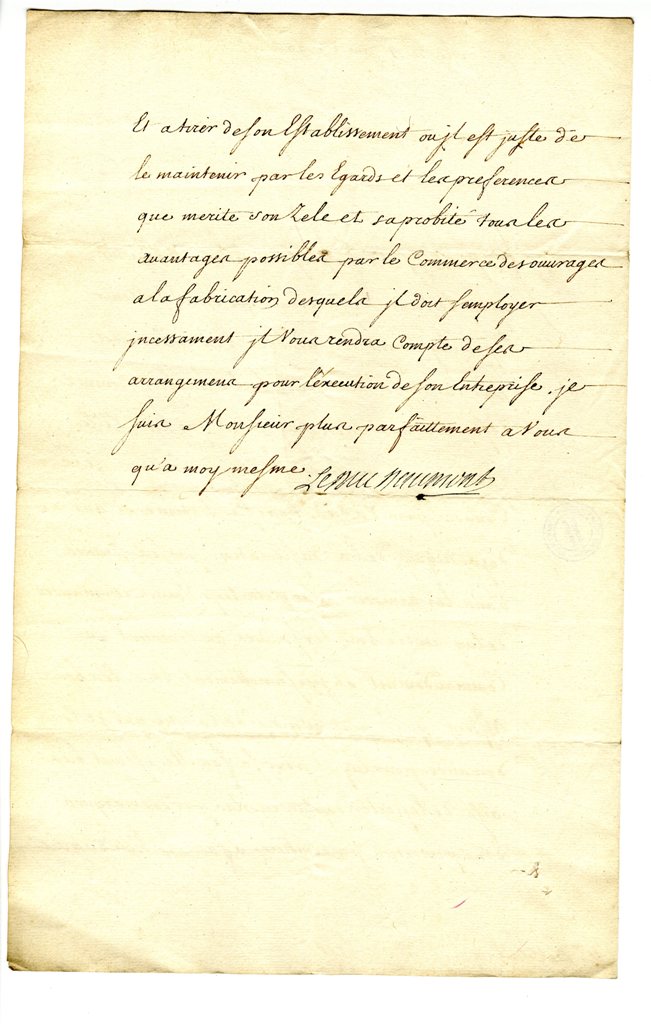 Et a tirer de son Establissement ou jl est juste de
le maintenir par les Egards et les preferences
que merite son Zele et sa probité tous les
avantages possibles par le Commerce des ouvrages
a la fabrication desquels jl doit s'employer
jncessament jl Vous rendra Compte de ses
arrangemens pour l'éxecution de son Entreprise. je
suis Monsieur plus parfaittement a Vous
qu'a moy mesme
Le Duc Daumont